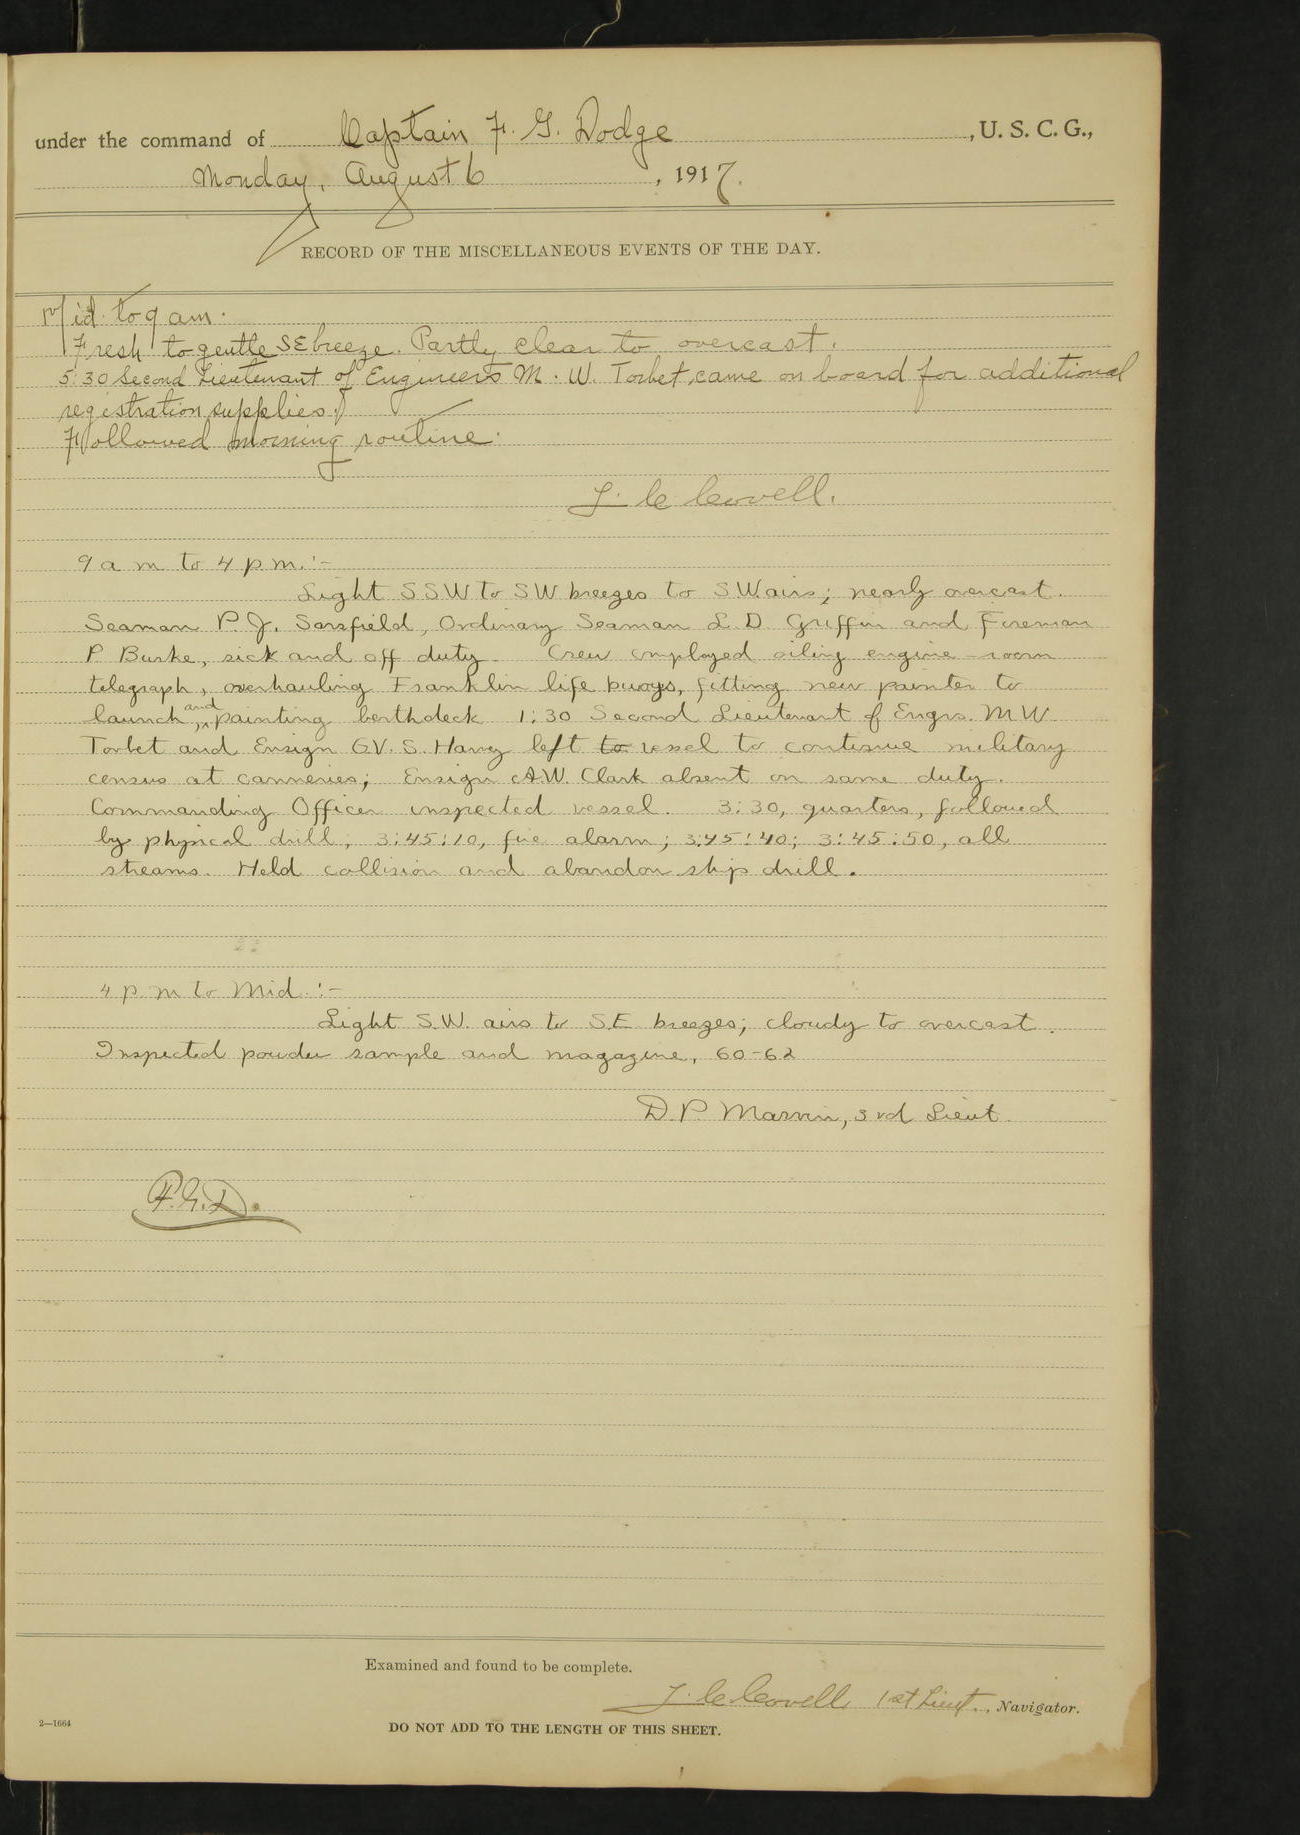 under the command of Captain F. G. Dodge, U. S. C. G.,
Monday, August 6, 1917.
RECORD OF THE MISCELLANEOUS EVENTS OF THE DAY.
Mid. to 9 am.
Fresh to gentle SE breeze. Partly clear to overcast.
5:30 Second Lieutenant of Engineers M. W. Torbet, came on board for additional
registration supplies.
Followed morning routine.
Covell.
9 a m to 4 p m. :-
Light SSW to SW breezes to S.W. airs; nearly overcast.
Seaman P. J. Sarsfield, Ordinary Seaman L. D. Griffin and Fireman
P. Burke, sick and off duty. Crew employed oiling engine-room
telegraph, overhauling Franklin life buoys, fitting new painter to
launch, and painting berthdeck. 1:30 Second Lieutenant of Engrs. M W
Torbet and Ensign G.V.S. Harvy left to vessel to continue military
census at canneries; Ensign A.W. Clark absent on same duty.
Commanding Officer inspected vessel. 3:30, quarters, followed
by physical drill; 3:45:10, fire alarm; 3:45:40; 3:45:50, all
streams. Held collision and abandon ship drill.
4 p. m to Mid. :-
Light S.W. airs to S.E. breezes; cloudy to overcast.
Inspected powder sample and magazine, 60-62
D. P. Marvin, 3rd Lieut.
F.G.D.
Examined and found to be complete.
Covell 1st Lieut., Navigator.
2—1664
DO NOT ADD TO THE LENGTH OF THIS SHEET.